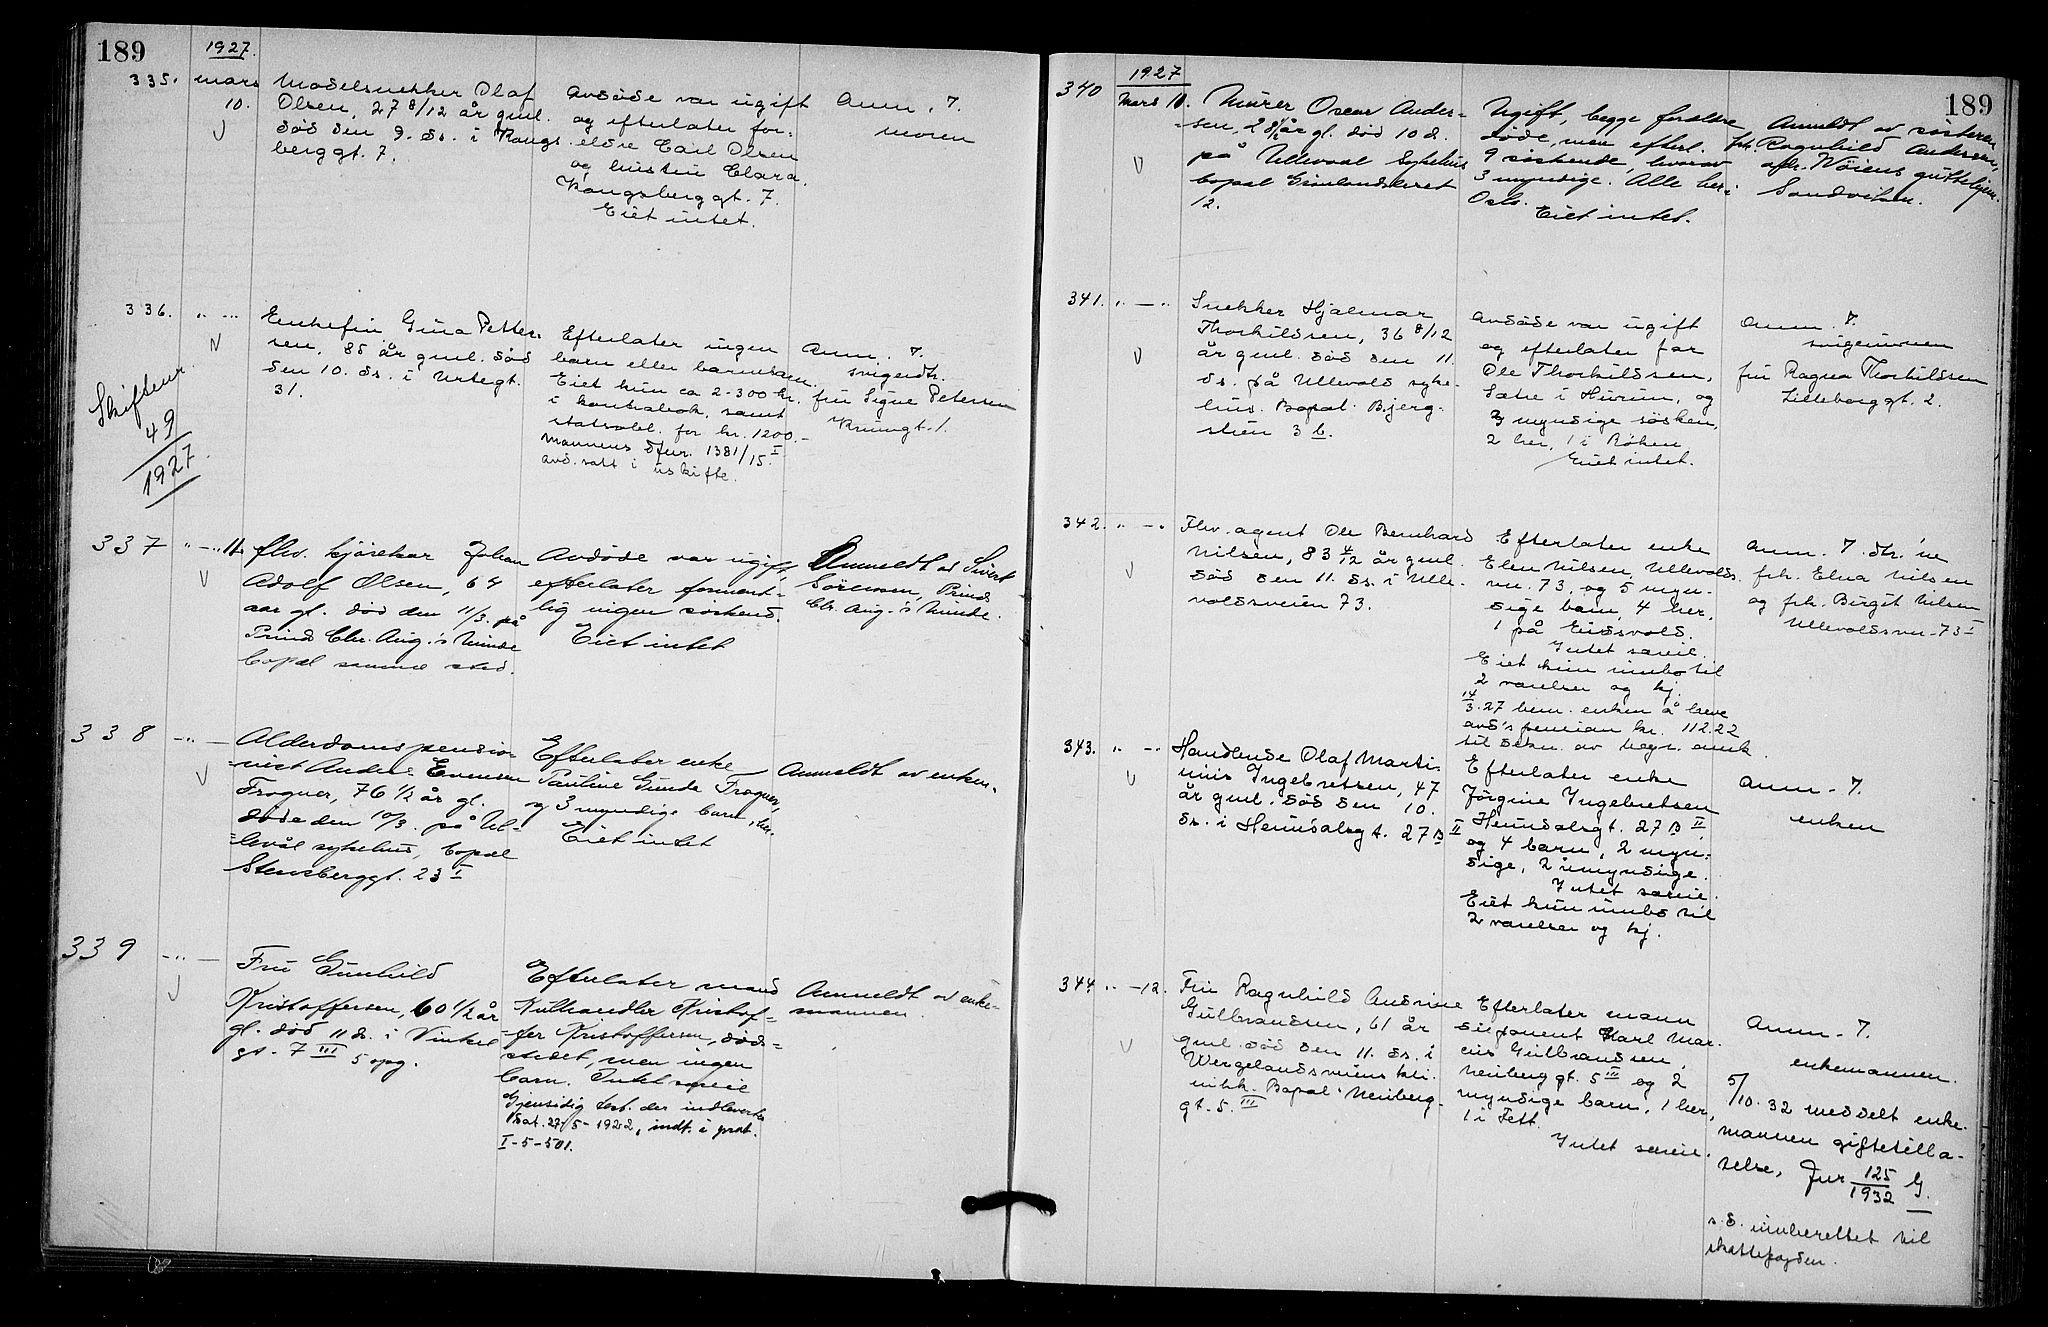 189
1927.
335. mars 10.
Modelsnekker Olaf
Olsen, 27 8/12 år gml.
död den 9. ds. i Kongs
berggt. 7.
Avdöde var ugift
og efterlater for-
eldre Carl Olsen
og hustru Clara.
Kongsberggt. 7.
Eiet intet.
Anm. 7.
moren
336. " - "
Enkefru Gina Petter-
sen, 85 år gml. död
den 10. ds. i Urtegt.
31.
Efterlater ingen
barn eller barnebarn.
Eiet kun ca 2-300 kr.
i kontrabok, samt
statsobl. for kr. 1200.-
Mannens dfnr. 1381/15 I
avd. satt i uskifte.
Anm. 7.
svigerdtr.
fru Signe Petersen
Krumgt. 1.
Skiftenr.
49
1927.
337 " - " 11.
flv. kjörekar Johan
Adolf Olsen, 64
aar gl. död den 11/3. på
Prinds Chr. Aug.'s Minde
bopæl samme sted.
Avdöde var ugift,
efterlater forment-
lig ingen söskend.
Eiet intet
Anmeldt av Sivert
Sörensen, Prinds
Chr. Aug.'s Minde.
338 - " -
Alderdomspensio-
nist Anders Evensen
Frogner, 76 1/2 år gl.
döde den 10/3. på Ul-
levål sykehus, bopæl
Stensberggt. 23 I
Efterlater enke
Pauline Gunda Frogner,
og 3 myndige barn, her.
Eiet intet
Anmeldt av enken.
339 - " -
Fru Gunhild
Kristoffersen, 60 1/2 år
gl. död 11 d. i Vinkel
gt. 7 III 5 opg.
Efterlater mand
Kulhandler Kristof-
fer Kristoffersen, döds-
stedet, men ingen
barn. Intet særeie
Gjensidig test. der indleverte
dat. 27-5-1922, indt. i prot.
I-5-501.
Anmeldt av enke-
mannen.
189
1927
340 Mars 10.
Murer Oscar Ander-
sen, 28 1/2 år gl. död 10 d.
på Ullevaal Sykehus
bopæl Grönlandsleret
12.
Ugift, begge foreldre
döde, men efterl.
9 söskende, hvorav
3 myndige. Alle her i
Oslo. Eiet intet.
Anmeldt av sösteren
frk. Ragnhild Andersen,
adr. Nöiens guttehjem
Sandviken.
341. " - "
Snekker Hjalmar
Thorkildsen, 36 8/12
år gml. död den 11.
ds. på Ullevold syke-
hus. Bopæl: Bjerg-
stien 3 b.
Avdöde var ugift
og efterlater far
Ole Thorkildsen,
Sætre i Hurum, og
3 myndige sösken,
2 her, 1 i Röken
Eiet intet.
Anm. 7.
svigermoren
fru Ragna Thorkildsen
Lilleborggt. 2.
342. " - "
Flv. agent Ole Bernhard
Nilsen, 83 4/12 år gml.
död den 11. ds. i Ulle-
voldsveien 73.
Efterlater enke
Elen Nilsen, Ullevolds-
vn. 73, og 5 myn-
dige barn, 4 her,
1 på Eidsvold.
Intet særeie.
Eiet kun innbo til
2 værelser og kj.
14/3.27 bem. enken å heve
avd's pension kr. 112.22
til dekn. av begr. omk.
Anm. 7. dtr.'ne
frk. Elna Nilsen
og frk. Birgit Nilsen
Ullevoldsvn. 73 I
343. " - "
Handlende Olaf Marti-
nius Ingebretsen, 47
år gml. död den 10.
ds. i Heimdalsgt. 27 B II
Efterlater enke
Jörgine Ingebretsen
Heimdalsgt. 27 B II
og 4 barn, 2 myn-
dige, 2 umyndige.
Intet særeie.
Eiet kun innbo til
2 værelser og kj.
Anm. 7.
enken
344. " - 12.
Fru Ragnhild Andrine
Gulbrandsen, 61 år
gml. död den 11. ds. i
Wergelandsveiens kli-
nikk. Bopæl: Neuberg-
gt. 5. III
Efterlater mann
disponent Karl Mar-
ius Gulbrandsen,
Neuberggt. 5 III og 2
myndige barn, 1 her,
1 i Fett.
Intet særeie.
Anm. 7.
enkemannen.
5/10.32 meddelt enke-
mannen giftetilla-
telse, Jnr 125/1932 G.
s.d. innberettet til
skattefogden.